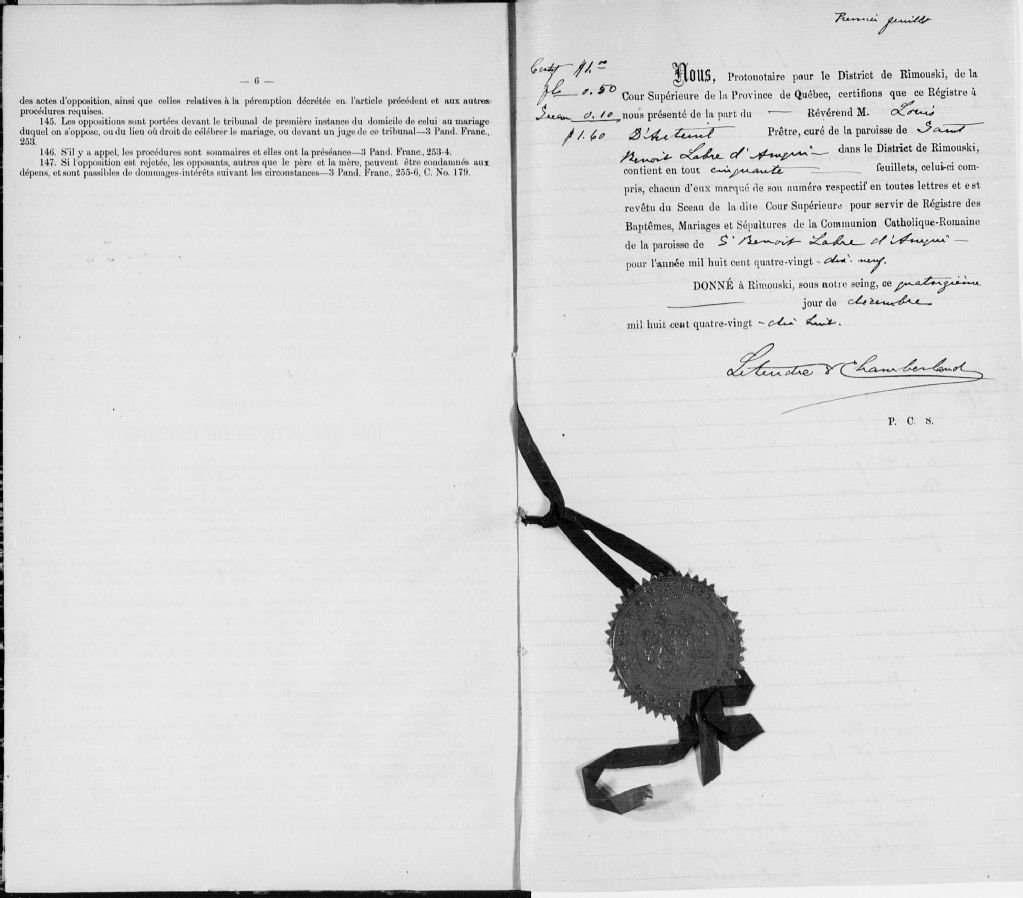 — 6 —
des actes d'opposition, ainsi que celles relatives à la péremption décrétée en l'article précédent et aux autres
procédures requises.
145. Les oppositions sont portées devant le tribunal de première instance du domicile de celui au mariage
duquel on s'oppose, ou du lieu où droit de célébrer le mariage, ou devant un juge de ce tribunal—3 Pand. Franc.,
253.
146. S'il y a appel, les procédures sont sommaires et elles ont la préséance—3 Pand. Franc., 253-4.
147. Si l'opposition est rejetée, les opposants, autres que le père et la mère, peuvent être condamnés aux
dépens, et sont passibles de dommages-intérêts suivant les circonstances—3 Pand. Franc., 255-6, C. No. 179.
Premier feuillet
Certif $1.00
0.50
Sceau 0.10
$1.60
Nous, Protonotaire pour le District de Rimouski, de la
Cour Supérieure de la Province de Québec, certifions que ce Régistre à
nous présenté de la part du — Révérend M. Louis
D'Auteuil Prêtre, curé de la paroisse de Saint
Benoit Labre d'Amqui — dans le District de Rimouski,
contient en tout cinquante — feuillets, celui-ci com-
pris, chacun d'eux marqué de son numéro respectif en toutes lettres et est
revêtu du Sceau de la dite Cour Supérieure pour servir de Régistre des
Baptêmes, Mariages et Sépultures de la Communion Catholique-Romaine
de la paroisse de St Benoit Labre d'Amqui —
pour l'année mil huit cent quatre-vingt - dix-neuf.
DONNÉ à Rimouski, sous notre seing, ce quatorzième
— jour de décembre
mil huit cent quatre-vingt - dix huit.
Letendre & Chamberland
P. C. S.